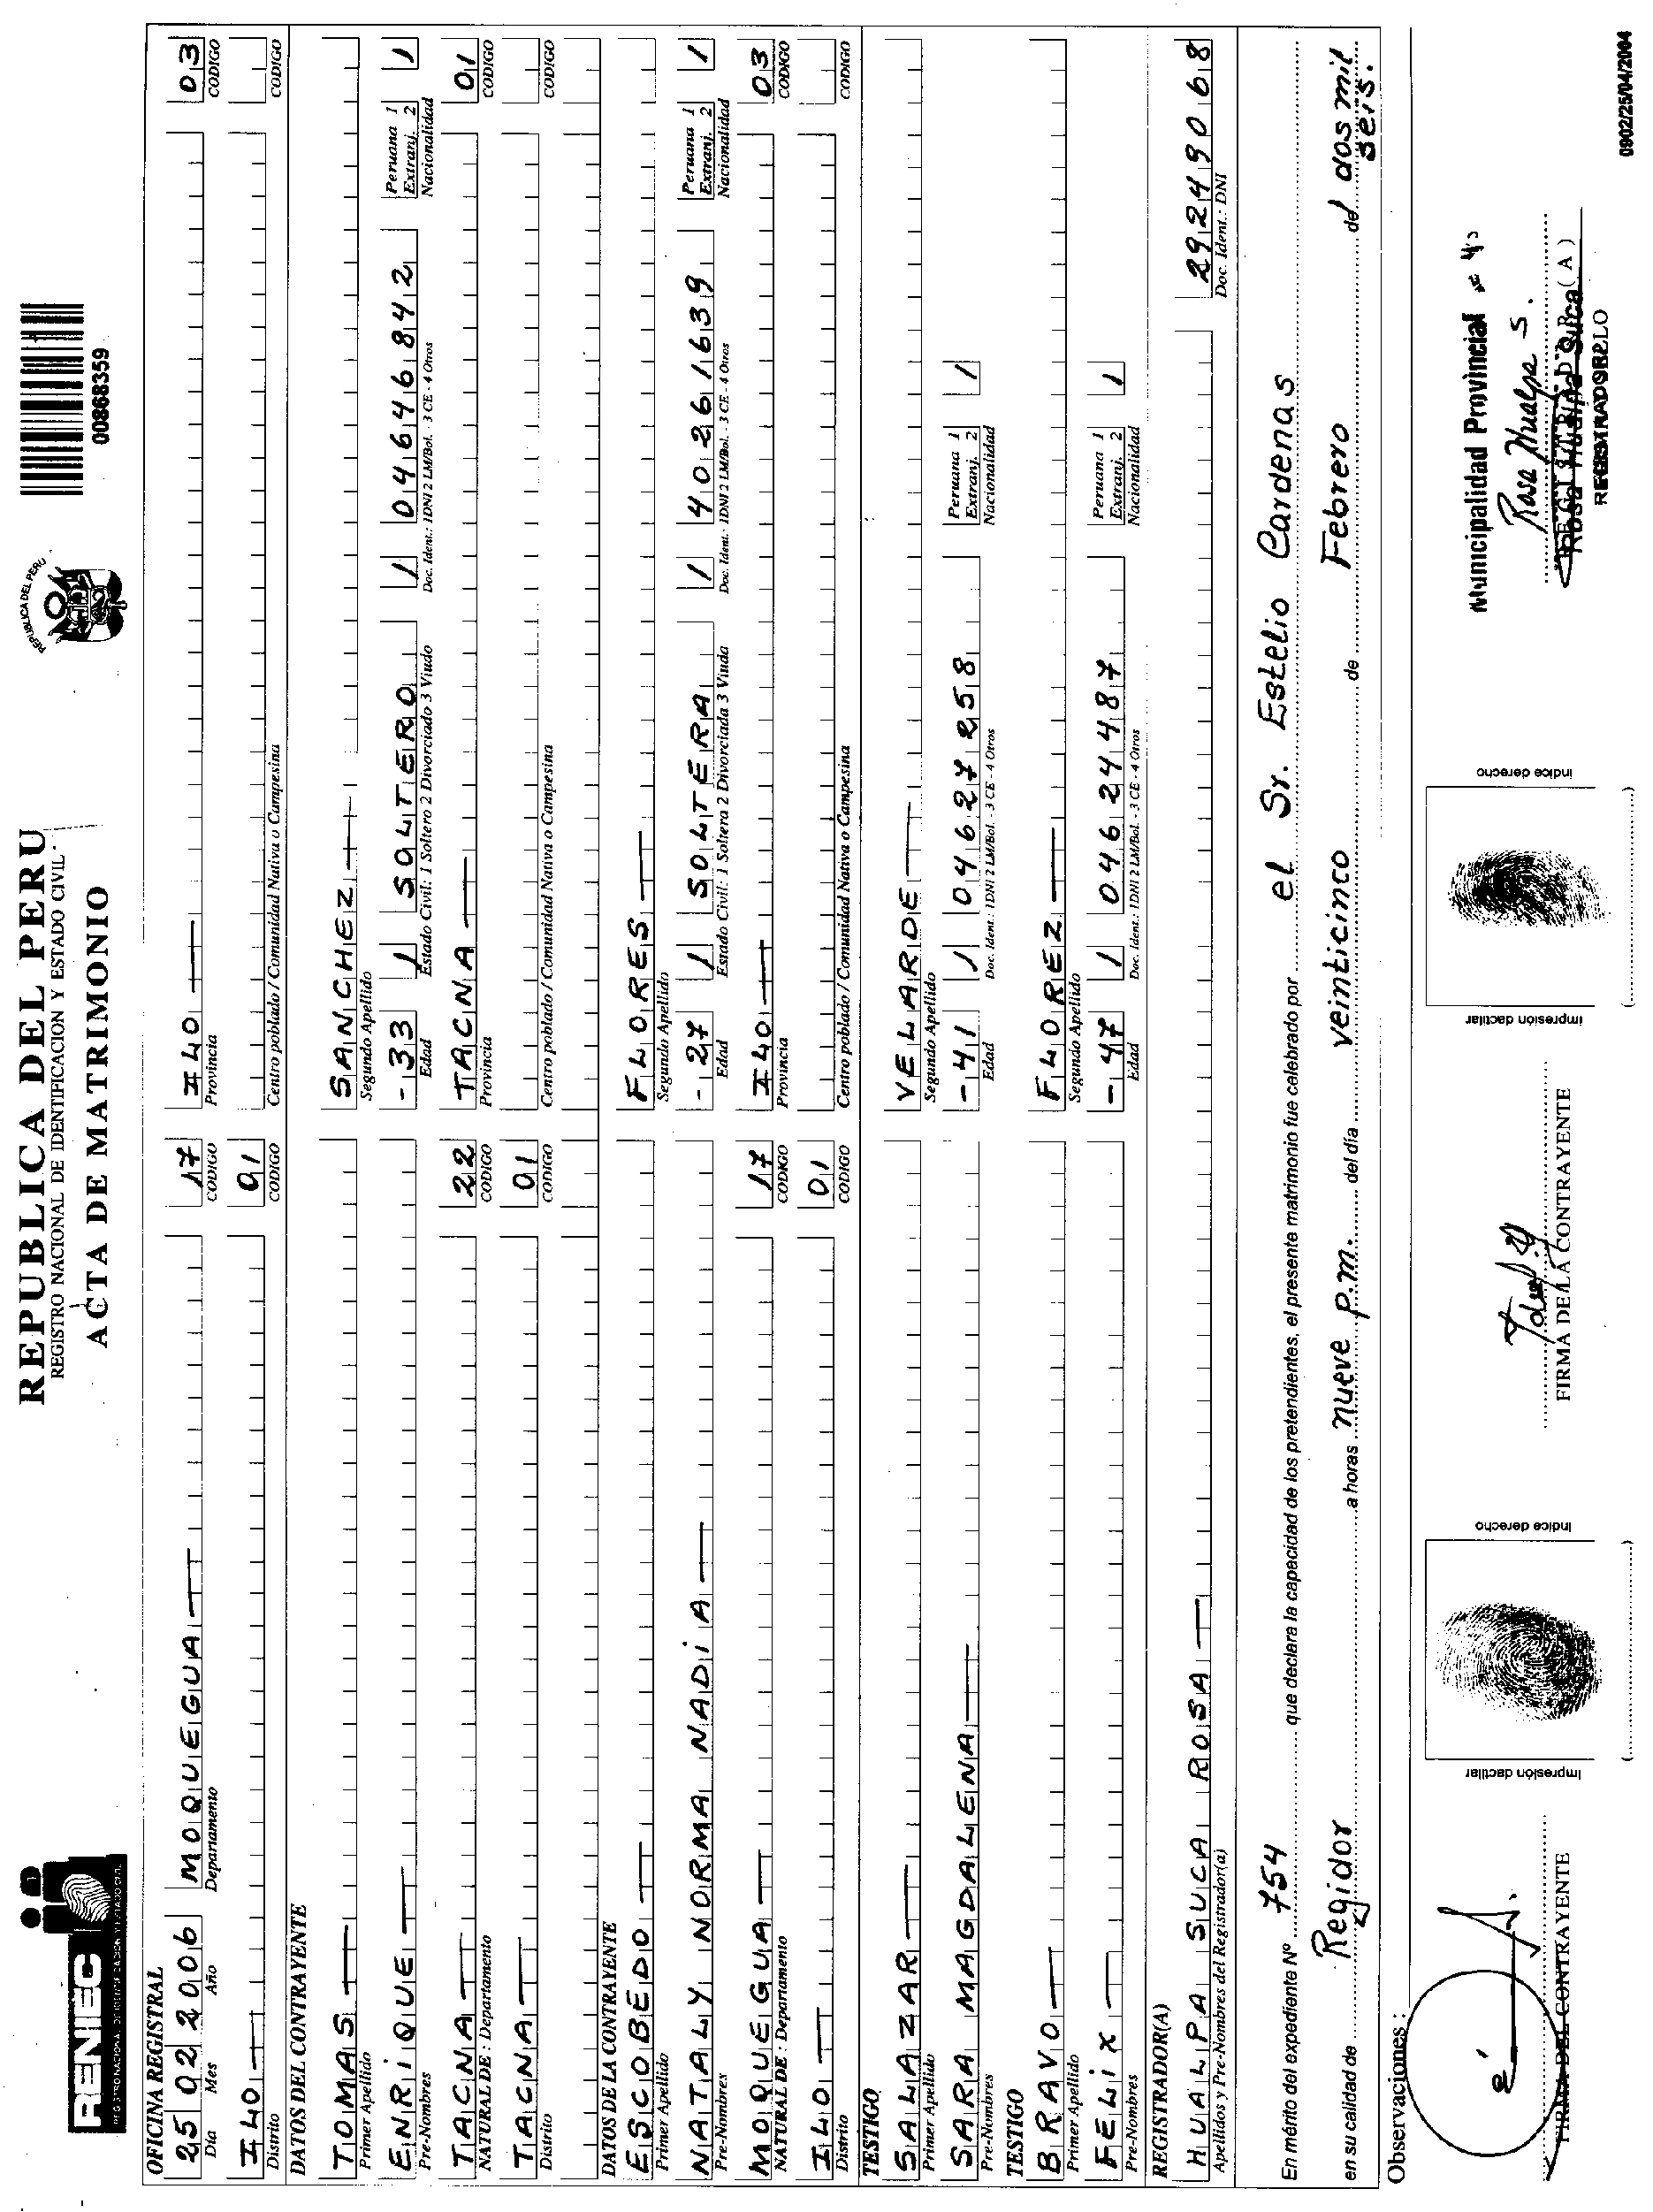 RENIEC
REGISTRO NACIONAL DE IDENTIFICACION Y ESTADO CIVIL
REPUBLICA DEL PERU
REGISTRO NACIONAL DE IDENTIFICACION Y ESTADO CIVIL
ACTA DE MATRIMONIO
REPUBLICA DEL PERU
00868359
OFICINA REGISTRAL
25 02 2006 MOQUEGUA 17 ILO 03
Día Mes Año Departamento CODIGO Provincia CODIGO
ILO 01
Distrito CODIGO Centro poblado / Comunidad Nativa o Campesina CODIGO
DATOS DEL CONTRAYENTE
TOMAS SANCHEZ
Primer Apellido Segundo Apellido
ENRiQUE - 33 1 SOLTERO 1 04646842 Peruana 1 Extranj. 2 1
Pre-Nombres Edad Estado Civil: 1 Soltero 2 Divorciado 3 Viudo Doc. Ident.: 1DNI 2 LM/Bol. - 3 CE - 4 Otros Nacionalidad
TACNA 22 TACNA 01
NATURAL DE : Departamento CODIGO Provincia CODIGO
TACNA 01
Distrito CODIGO Centro poblado / Comunidad Nativa o Campesina CODIGO
DATOS DE LA CONTRAYENTE
ESCOBEDO FLORES
Primer Apellido Segundo Apellido
NATALY NORMA NADiA - 27 1 SOLTERA 1 40261639 Peruana 1 Extranj. 2 1
Pre-Nombres Edad Estado Civil: 1 Soltera 2 Divorciada 3 Viuda Doc. Ident.: 1DNI 2 LM/Bol. - 3 CE - 4 Otros Nacionalidad
MOQUEGUA 17 ILO 03
NATURAL DE : Departamento CODIGO Provincia CODIGO
ILO 01
Distrito CODIGO Centro poblado / Comunidad Nativa o Campesina CODIGO
TESTIGO
SALAZAR VELARDE
Primer Apellido Segundo Apellido
SARA MAGDALENA - 41 1 04627258 Peruana 1 Extranj. 2 1
Pre-Nombres Edad Doc. Ident.: 1DNI 2 LM/Bol. - 3 CE - 4 Otros Nacionalidad
TESTIGO
BRAVO FLOREZ
Primer Apellido Segundo Apellido
FELiX - 47 1 04624487 Peruana 1 Extranj. 2 1
Pre-Nombres Edad Doc. Ident.: 1DNI 2 LM/Bol. - 3 CE - 4 Otros Nacionalidad
REGISTRADOR(A)
HUALPA SUCA ROSA 29249068
Apellidos y Pre-Nombres del Registrador(a) Doc. Ident.: DNI
En mérito del expediente Nº 754 que declara la capacidad de los pretendientes, el presente matrimonio fue celebrado por el Sr. Estelio Cardenas
en su calidad de Regidor a horas nueve p.m. del día veinticinco de Febrero del dos mil seis.
Observaciones :
Municipalidad Provincial
Rosa Hualpa S.
Rosa Hualpa Suca
REGISTRADOR (A)
FIRMA DEL CONTRAYENTE
Impresión dactilar
índice derecho
FIRMA DE LA CONTRAYENTE
Impresión dactilar
índice derecho
0902/25/04/2004